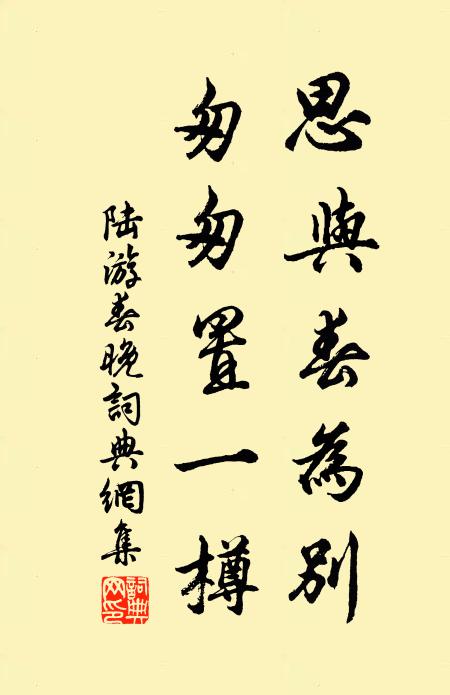 思與春為別
匆匆置一樽
陸游春晚詞典網集
詞典网印